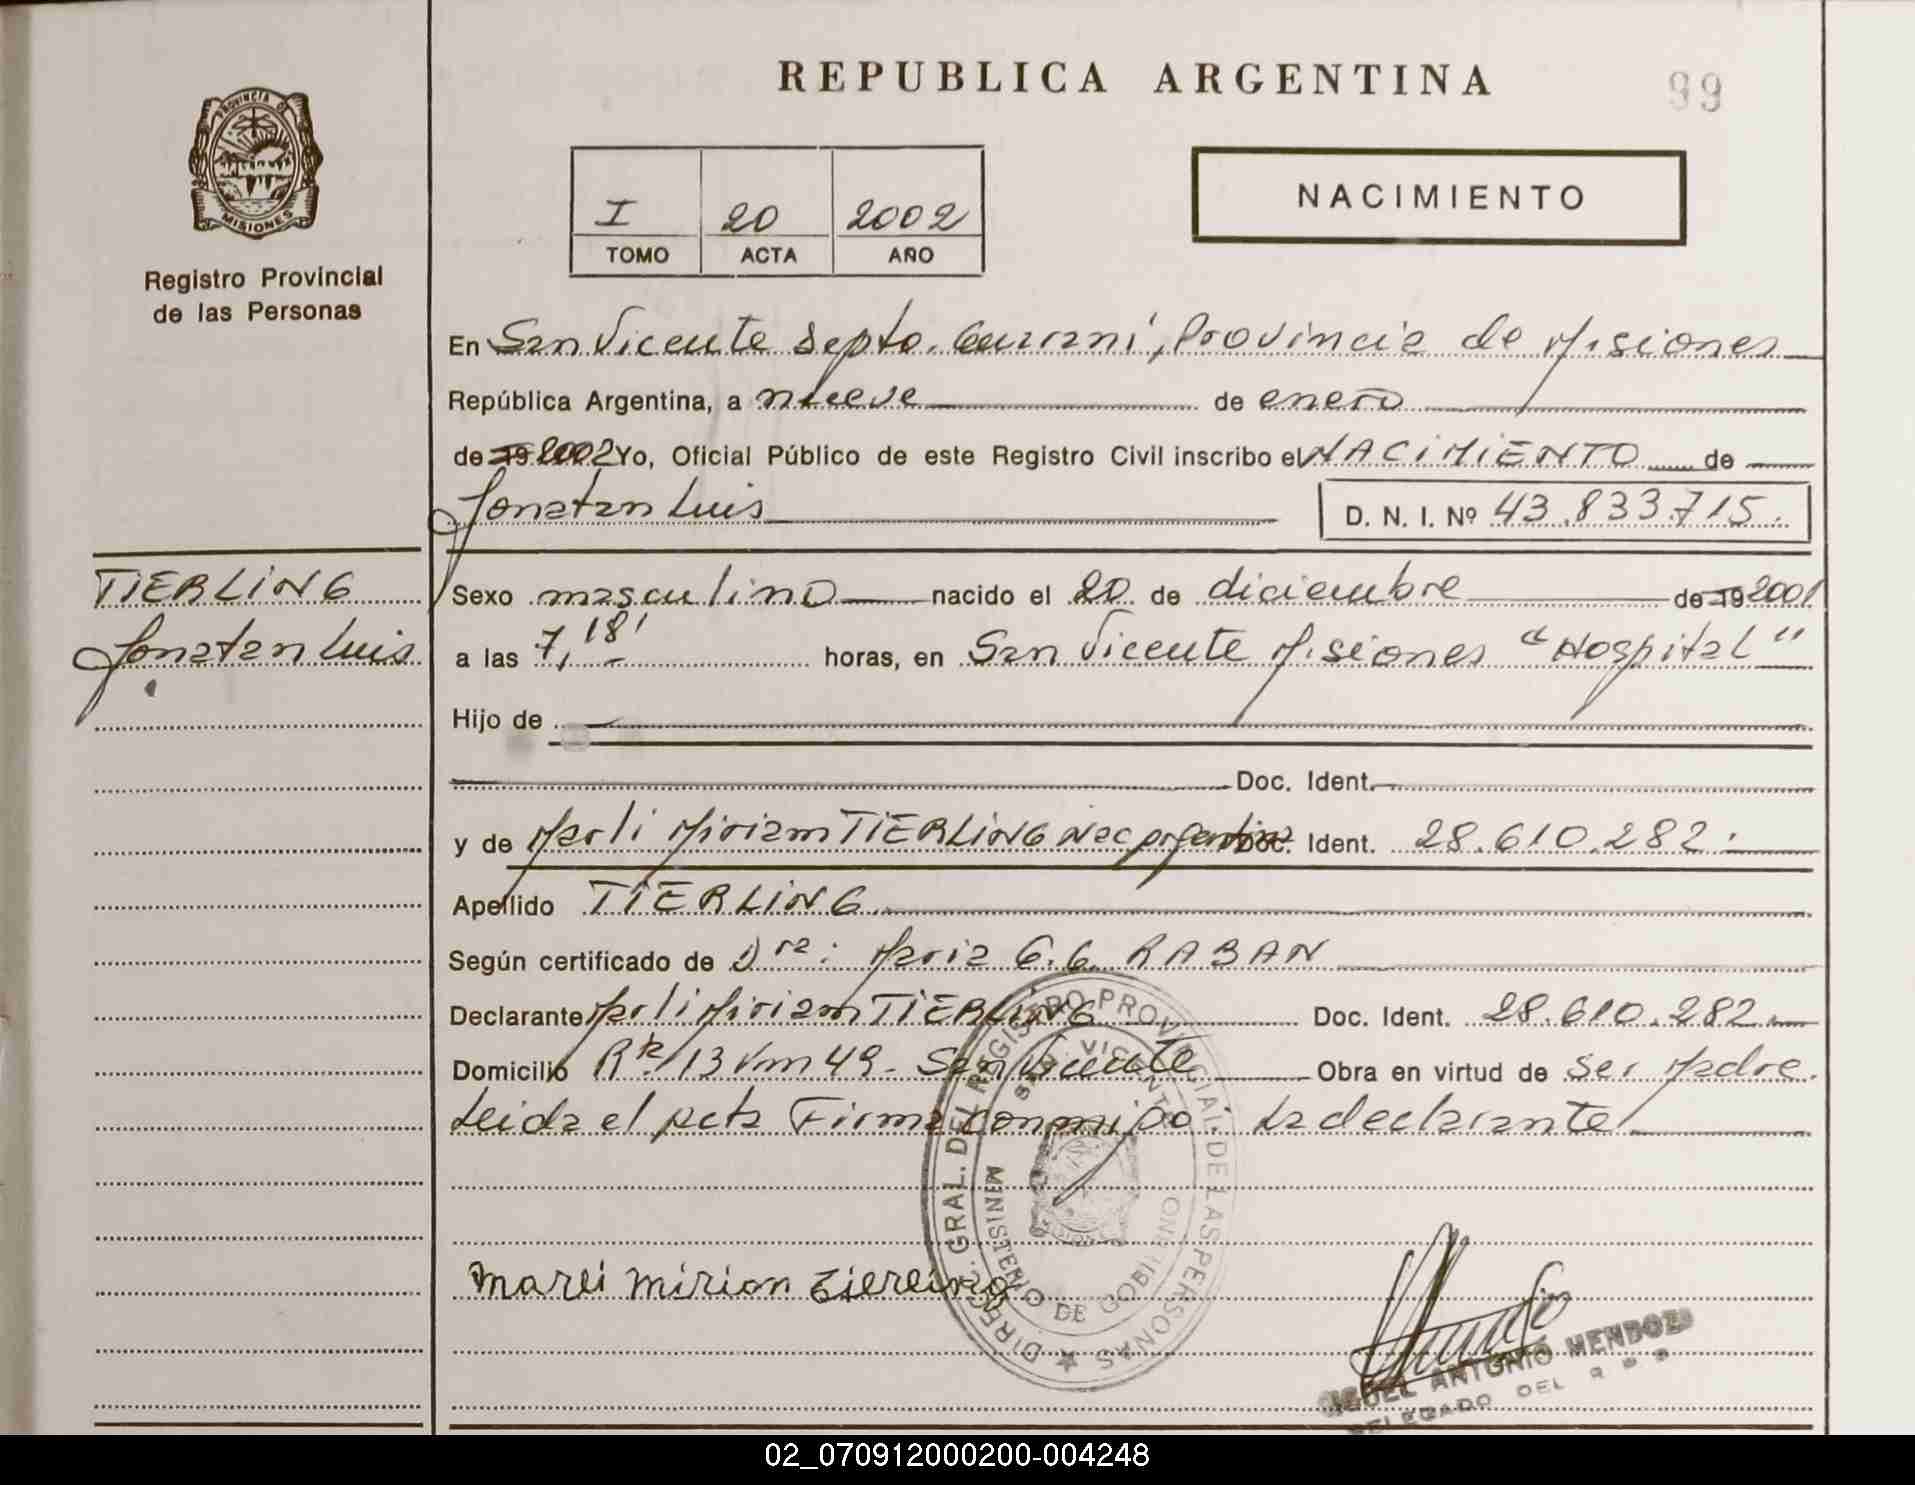 REPUBLICA ARGENTINA
99
PROVINCIA DE
MISIONES
Registro Provincial
de las Personas
I 20 2002
TOMO ACTA AÑO
NACIMIENTO
En San Vicente Depto. Guarani, Provincia de Misiones
República Argentina, a nueve de enero
de 19 2002 Yo, Oficial Público de este Registro Civil inscribo el NACIMIENTO de
Jonatan Luis D. N. I. Nº 43.833.715.
TIERLING
Jonatan Luis
Sexo masculino nacido el 20 de diciembre de 19 2001
a las 7,18' horas, en San Vicente Misiones "Hospital"
Hijo de
Doc. Ident.
y de Marli Miriam TIERLING Nac argentina Doc. Ident. 28.610.282.
Apellido TIERLING
Según certificado de Dra: Maria G.G. RABAN
Declarante Marli Miriam TIERLING Doc. Ident. 28.610.282
Domicilio 13 Km 49 - San Vicente Obra en virtud de ser Madre
Leida el acta Firma conmigo: La declarante
DIREC. GRAL. DEL REGISTRO PROVINCIAL DE LAS PERSONAS
SAN VICENTE
MINISTERIO DE GOBIERNO
Marli Mirian Tierling
MIGUEL ANTONIO MENDOZA
DELEGADO DEL R P P
02_070912000200-004248